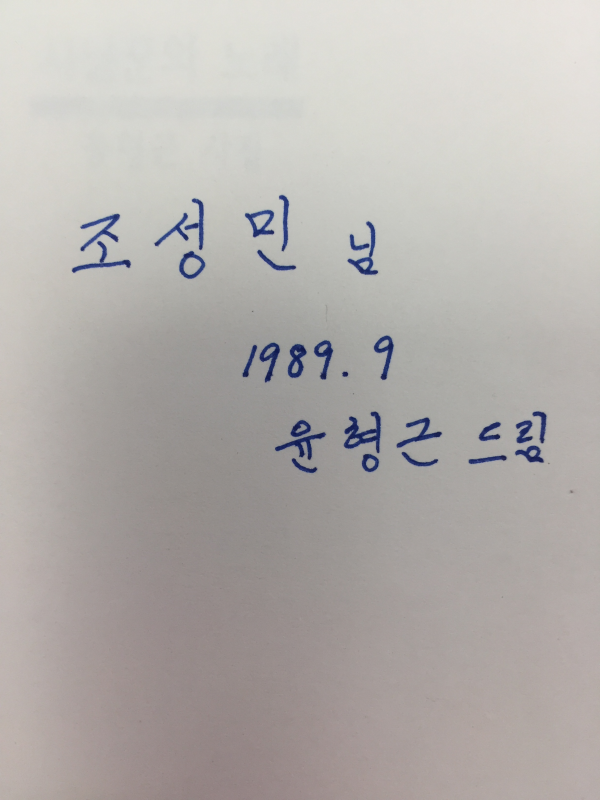 조성민 님
1989. 9
윤형근 드림